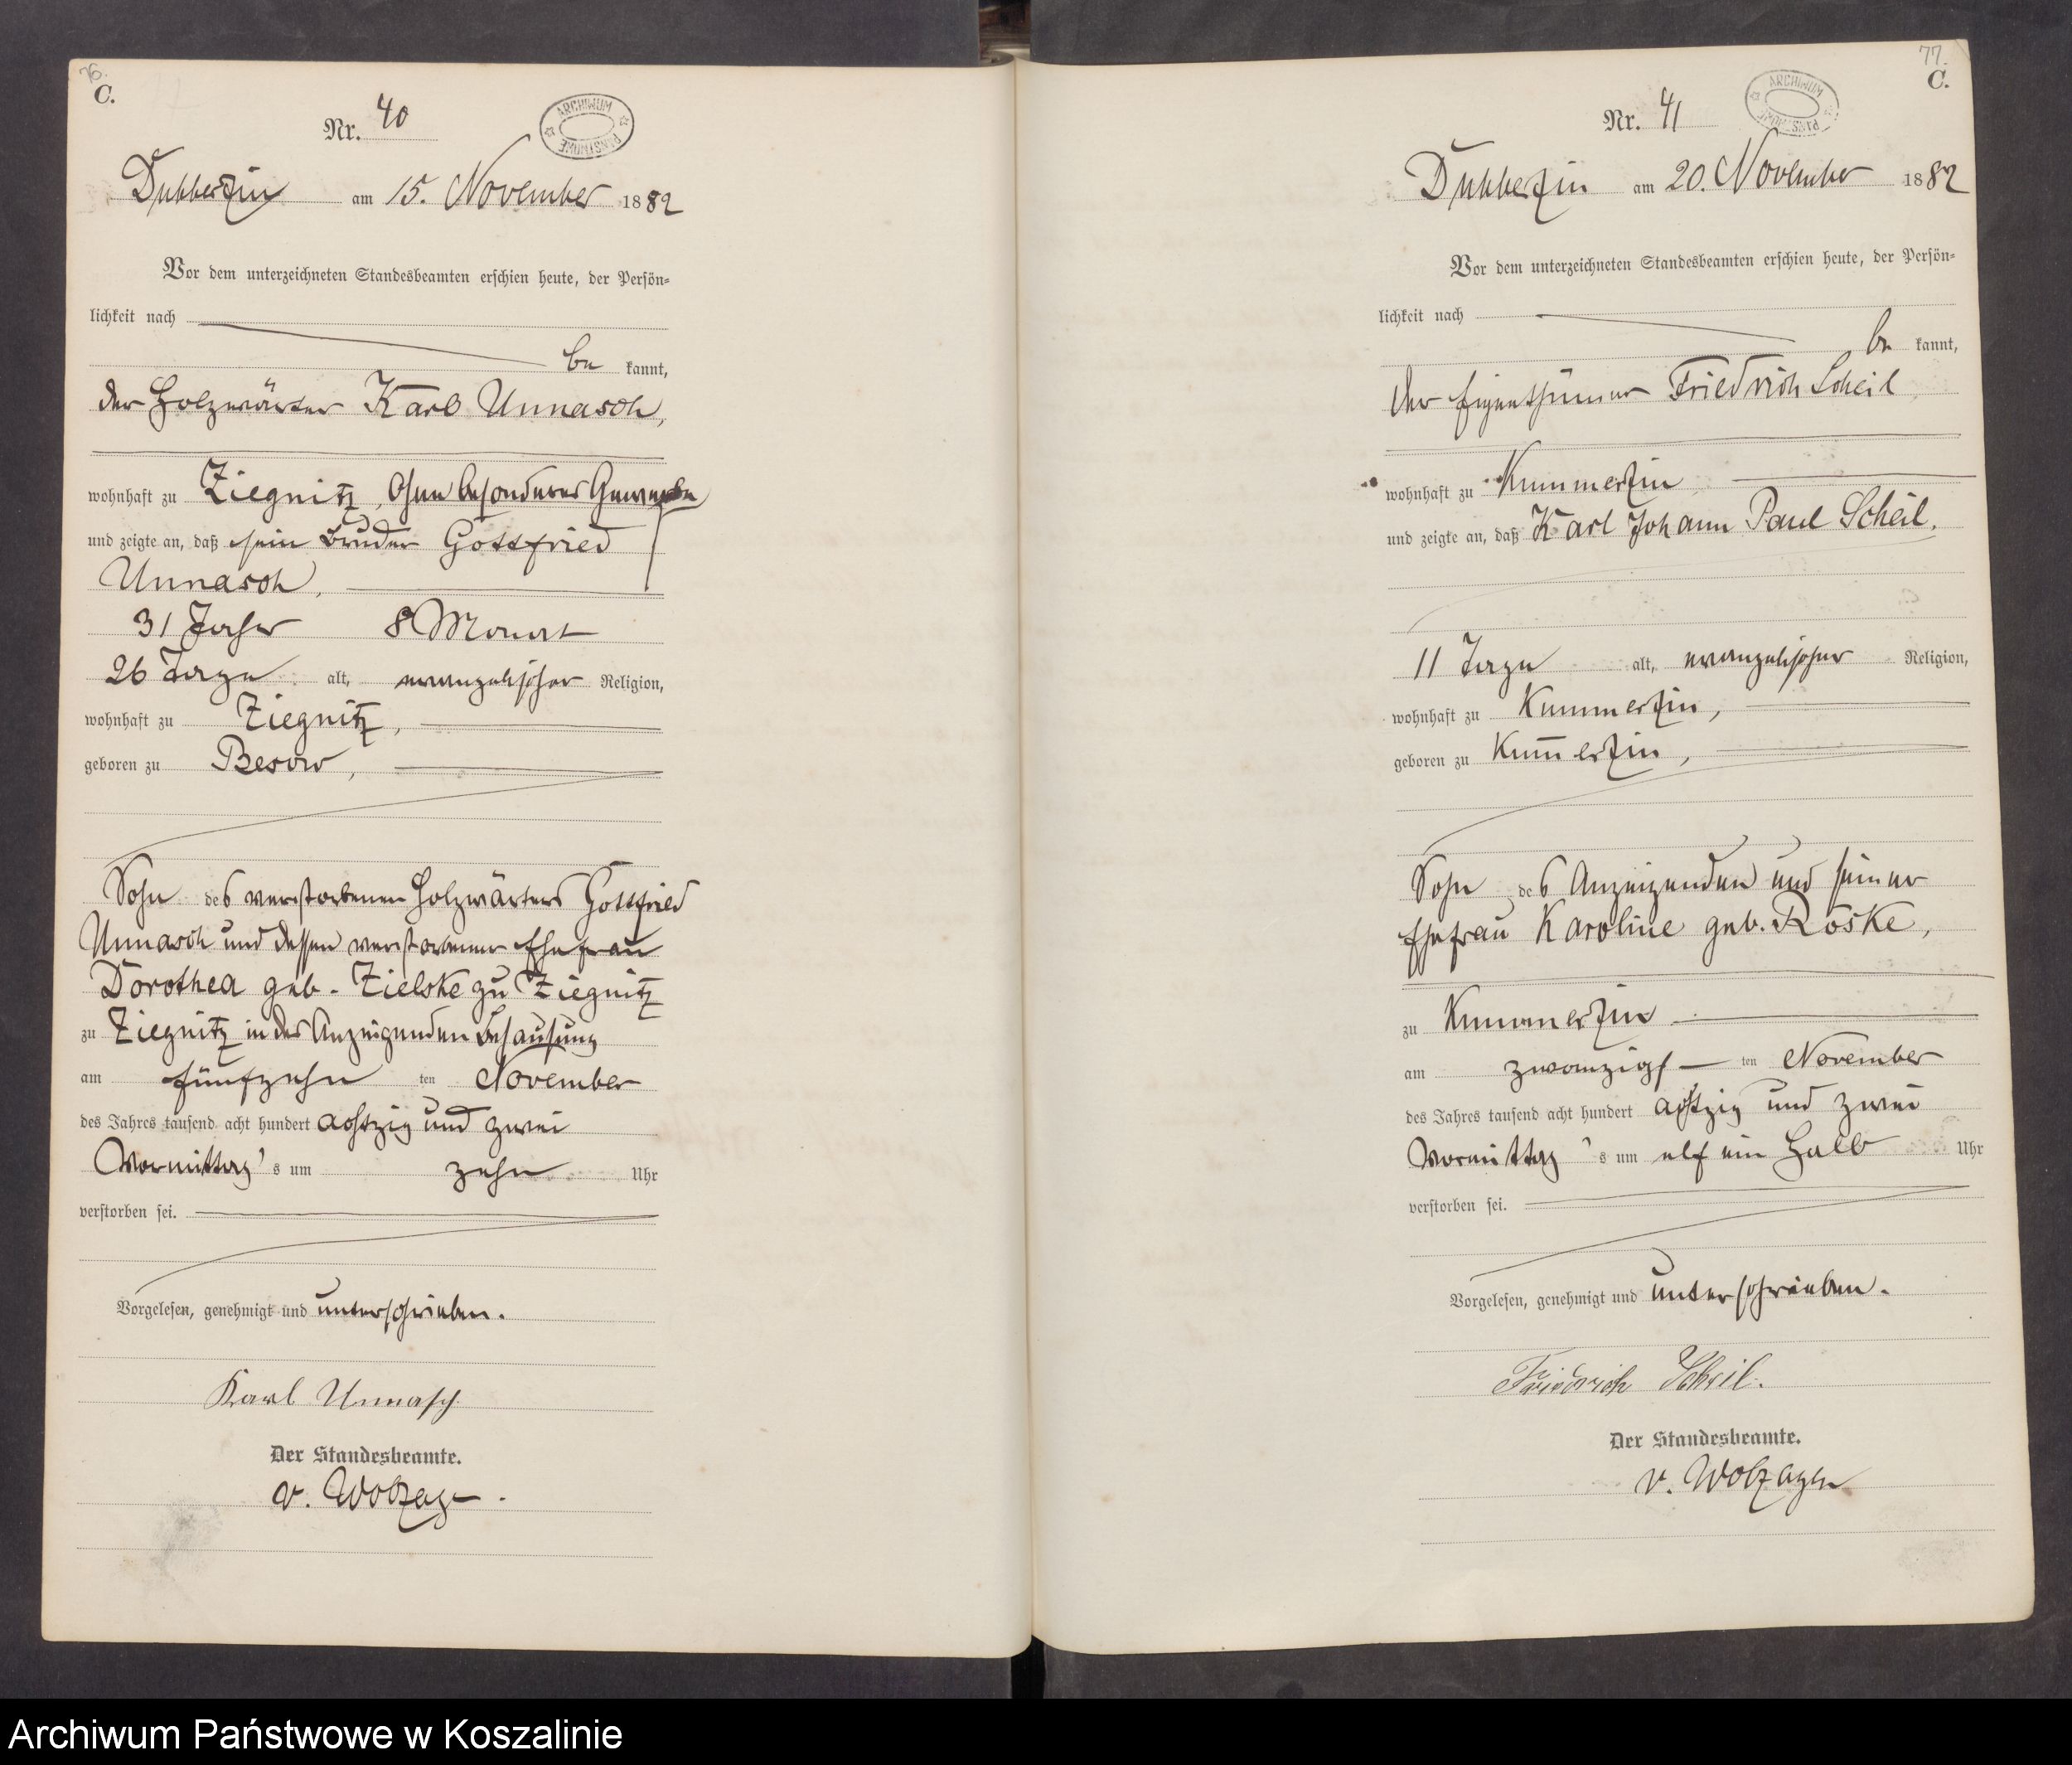 76.
C.
Nr. 40
ARCHIWUM PAŃSTWOWE
Dubberzin am 15. November 1882
Vor dem unterzeichneten Standesbeamten erschien heute, der Persön-
lichkeit nach
be kannt,
der Holzwärter Karl Unnasch,
wohnhaft zu Ziegnitz, ohne besonderes Gewerbe
und zeigte an, daß sein Bruder Gottfried
Unnasch,
31 Jahr 8 Monat
26 Tage alt, evangelischer Religion,
wohnhaft zu Ziegnitz,
geboren zu Besow,
Sohn des verstorbenen Holzwärters Gottfried
Unnasch und dessen verstorbener Ehefrau
Dorothea geb. Zielske zu Ziegnitz
zu Ziegnitz in des Anzeigenden Behausung
am fünfzehn ten November
des Jahres tausend acht hundert achtzig und zwei
Vormittag's um zehn Uhr
verstorben sei.
Vorgelesen, genehmigt und unterschrieben.
Karl Unnasch
Der Standesbeamte.
v. Wolzogen
77.
C.
Nr. 41
ARCHIWUM PAŃSTWOWE
Dubberzin am 20. November 1882
Vor dem unterzeichneten Standesbeamten erschien heute, der Persön-
lichkeit nach
be kannt,
der Eigenthümer Friedrich Scheil,
wohnhaft zu Kummerzin
und zeigte an, daß Karl Johann Paul Scheil.
11 Tage alt, evangelischer Religion,
wohnhaft zu Kummerzin,
geboren zu Kum̅erzin,
Sohn des Anzeigenden und seiner
Ehefrau Karoline geb. Röske,
zu Kummerzin
am zwanzigs ten November
des Jahres tausend acht hundert achtzig und zwei
Vormittag's um elf ein halb Uhr
verstorben sei.
Vorgelesen, genehmigt und unterschrieben.
Friedrich Scheil.
Der Standesbeamte.
v. Wolzogen
Archiwum Państwowe w Koszalinie